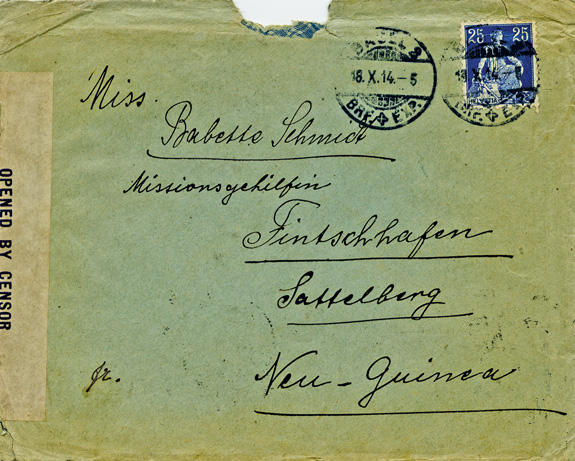 BASEL 2
18.X.14.–5
BRF. EXP.
25 25
Miss.
Babette Schmidt
Missionsgehilfin
Fintschhafen
Sattelberg
Neu-Guinea
fr.
OPENED BY CENSOR